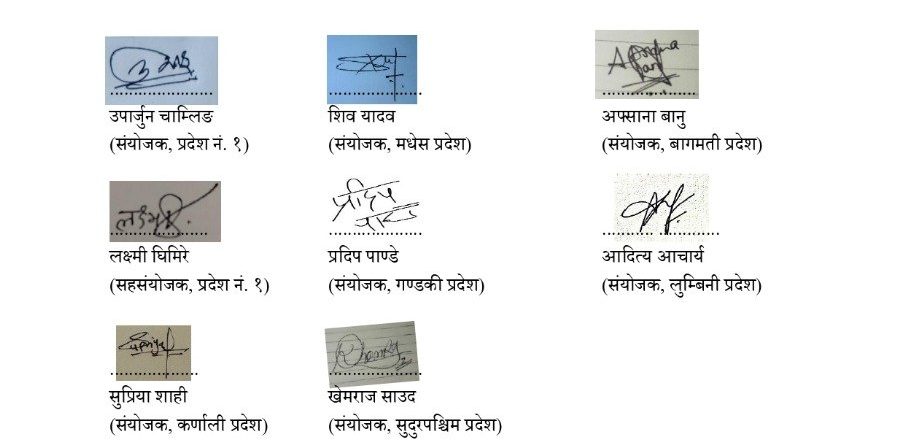 उपार्जुन चाम्लिङ
(संयोजक, प्रदेश नं. १)
शिव यादव
(संयोजक, मधेस प्रदेश)
अफ्साना बानु
(संयोजक, बागमती प्रदेश)
लक्ष्मी
लक्ष्मी घिमिरे
(सहसंयोजक, प्रदेश नं. १)
प्रदिप
पाण्डे
प्रदिप पाण्डे
(संयोजक, गण्डकी प्रदेश)
आदित्य आचार्य
(संयोजक, लुम्बिनी प्रदेश)
सुप्रिया शाही
(संयोजक, कर्णाली प्रदेश)
खेमराज साउद
(संयोजक, सुदुरपश्चिम प्रदेश)